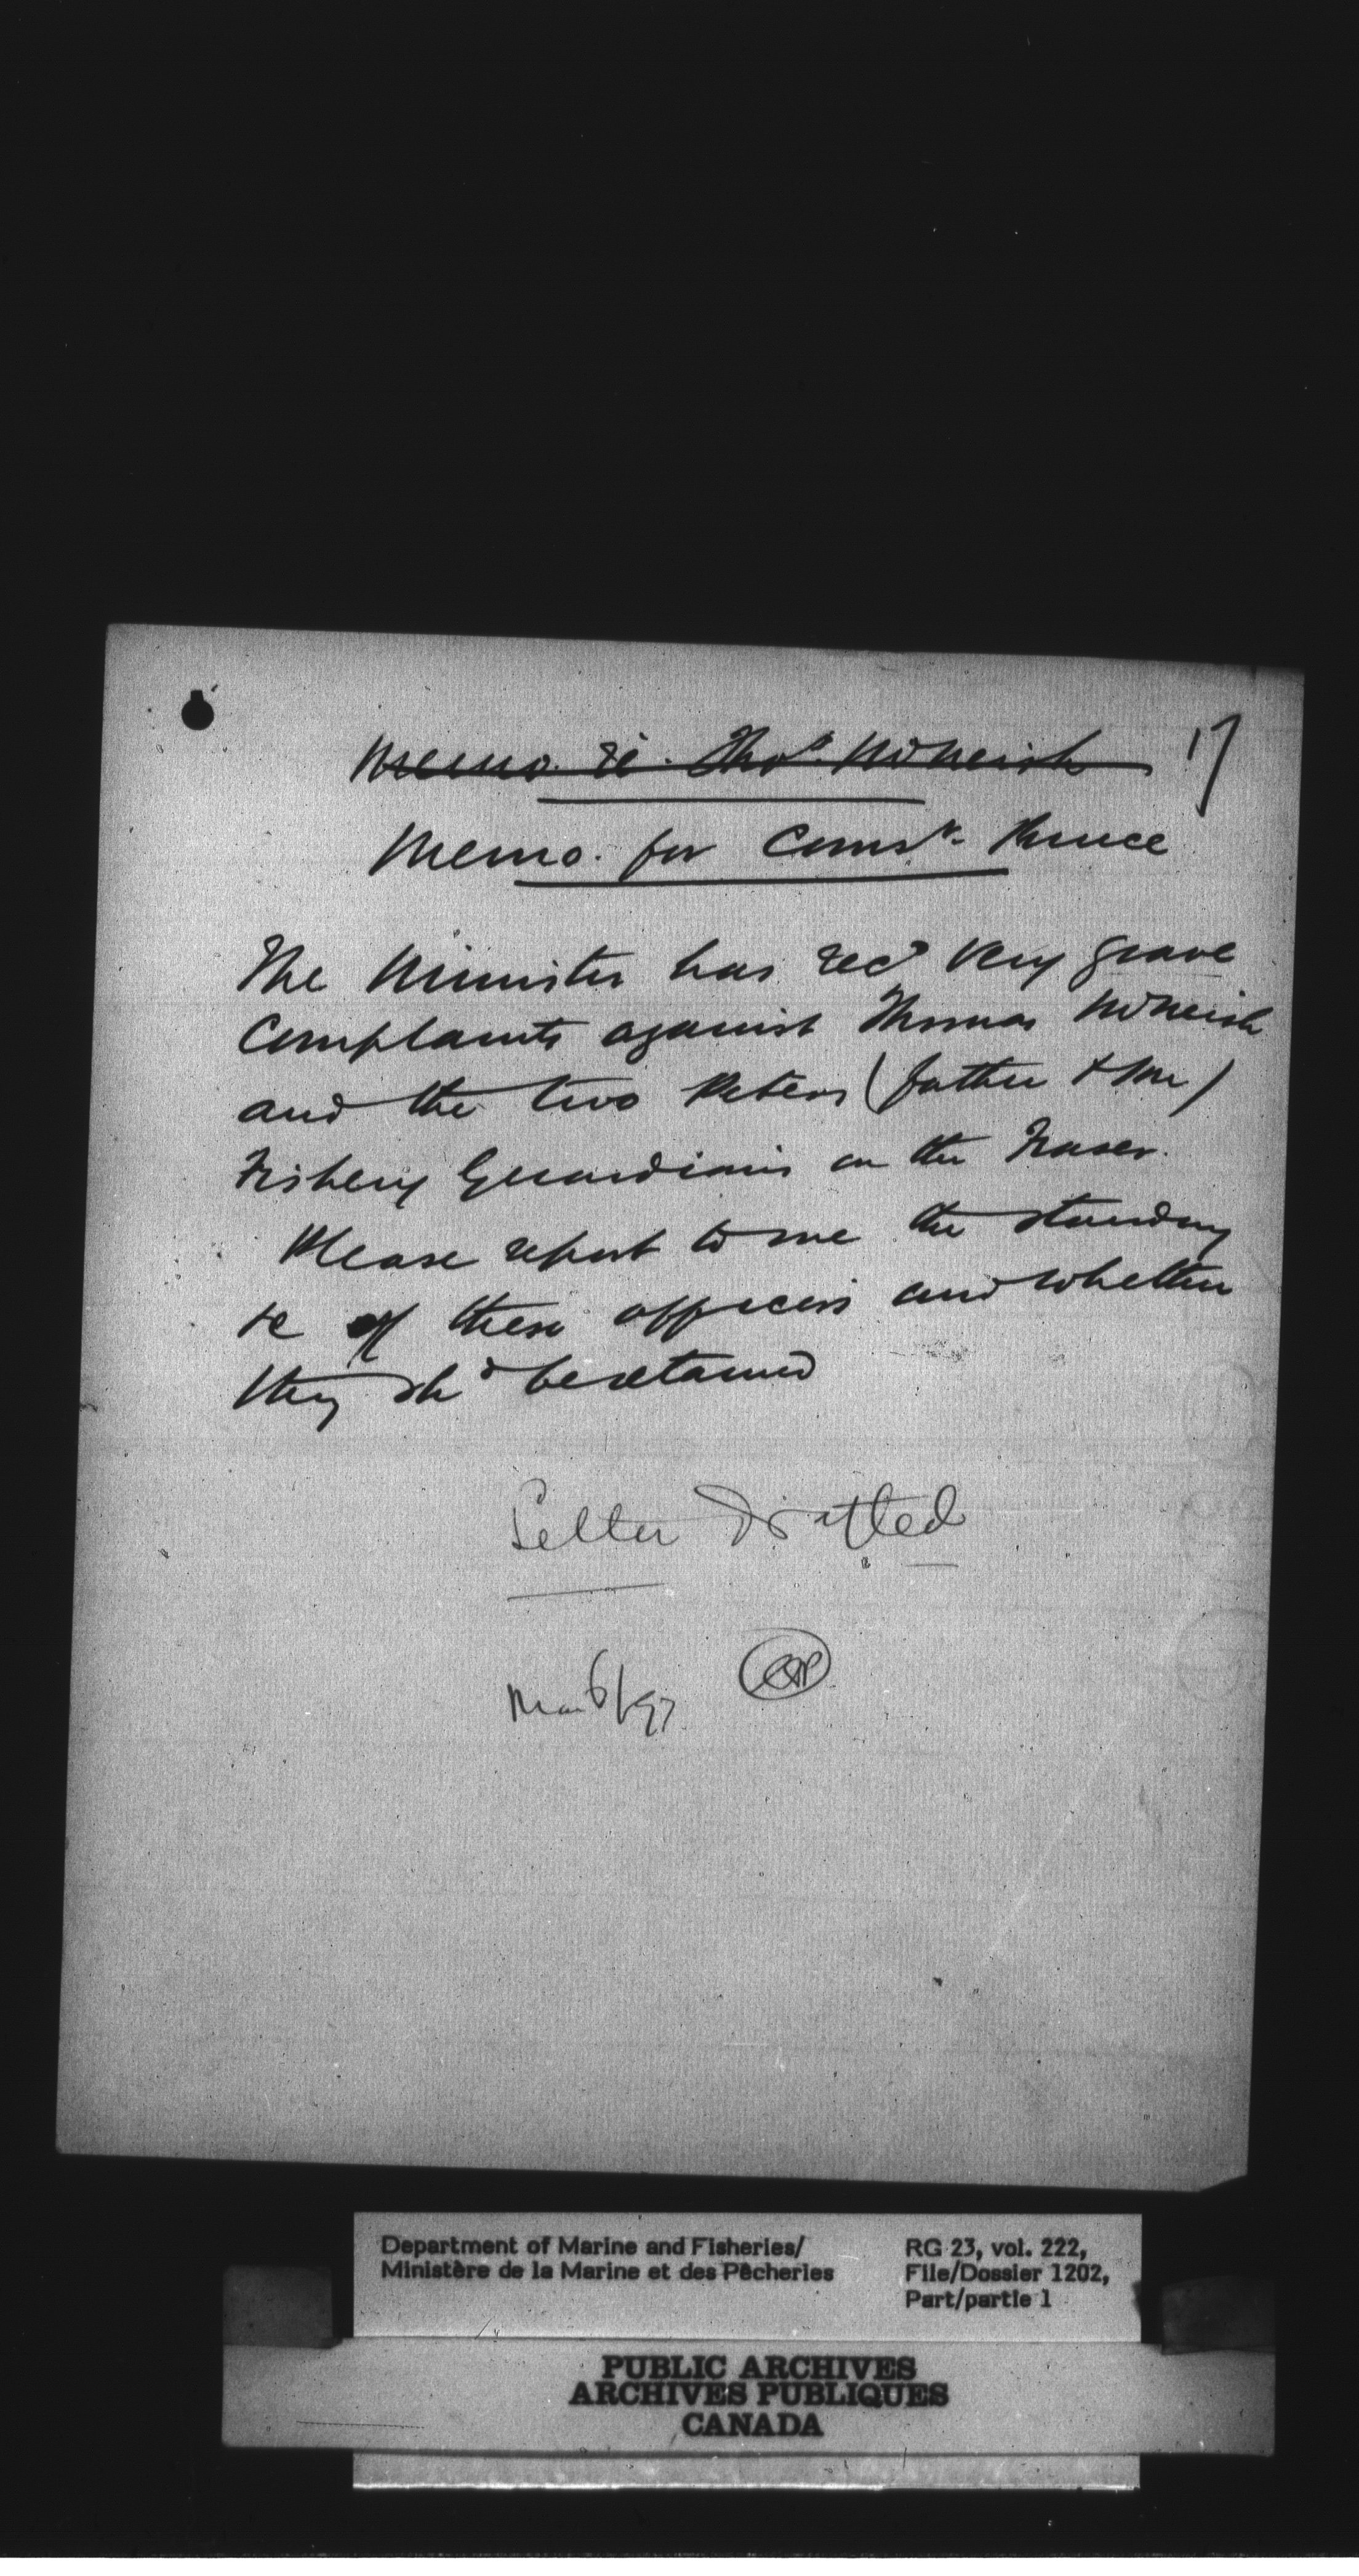 17
Memo. re. Thos. McNeish
Memo. for Comsr. Prince
The Minister has recd very grave
Complaints against Thomas McNeish
and the two Peters (father & son)
Fishery Guardians on the Fraser.
Please report to me the standing
&c of these officers and whether
they shd be retained
Letter Drafted
Mar 6/97
Department of Marine and Fisheries/
Ministère de la Marine et des Pêcheries
RG 23, vol. 222,
File/Dossier 1202,
Part/partie 1
PUBLIC ARCHIVES
ARCHIVES PUBLIQUES
CANADA